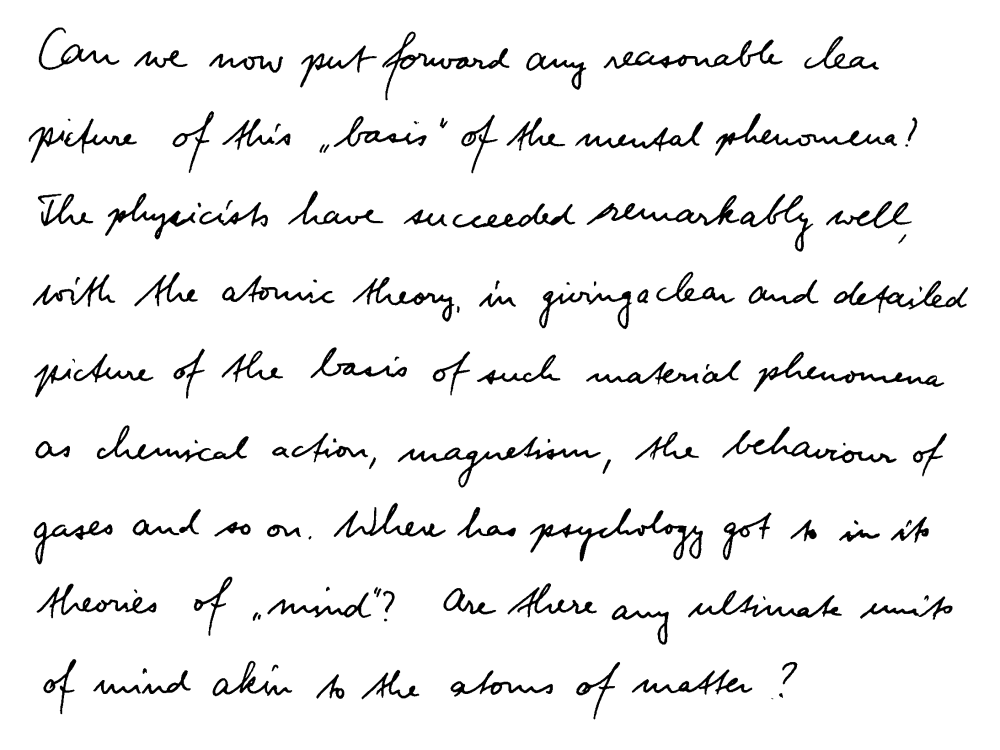 Can we now put forward any reasonable clear
picture of this „basis“ of the mental phenomena?
The physicists have succeeded remarkably well,
with the atomic theory, in giving a clear and detailed
picture of the basis of such material phenomena
as chemical action, magnetism, the behaviour of
gases and so on. Where has psychology got to in its
theories of „mind“? Are there any ultimate units
of mind akin to the atoms of matter?